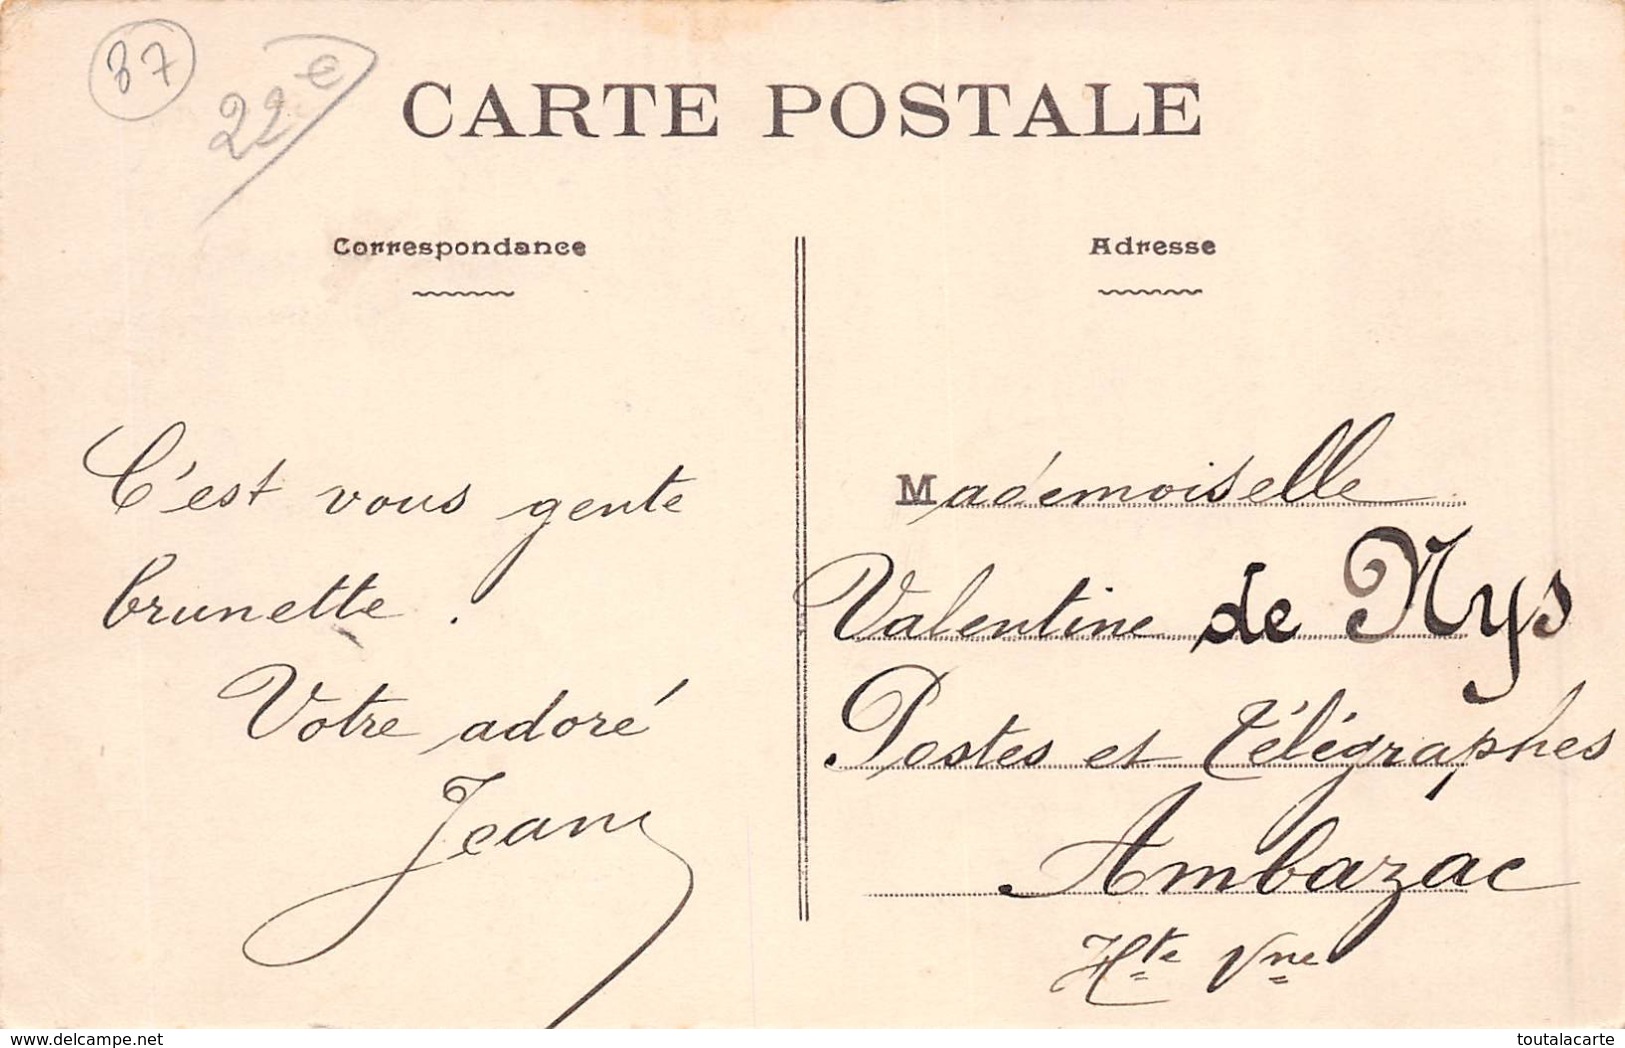 87
22€
CARTE POSTALE
Correspondance
Adresse
C'est vous gente
brunette.
Votre adoré
Jean
Mademoiselle
Valentine de Nys
Postes et Télégraphes
Ambazac
Hte Vne
delcampe.net
toutalacarte